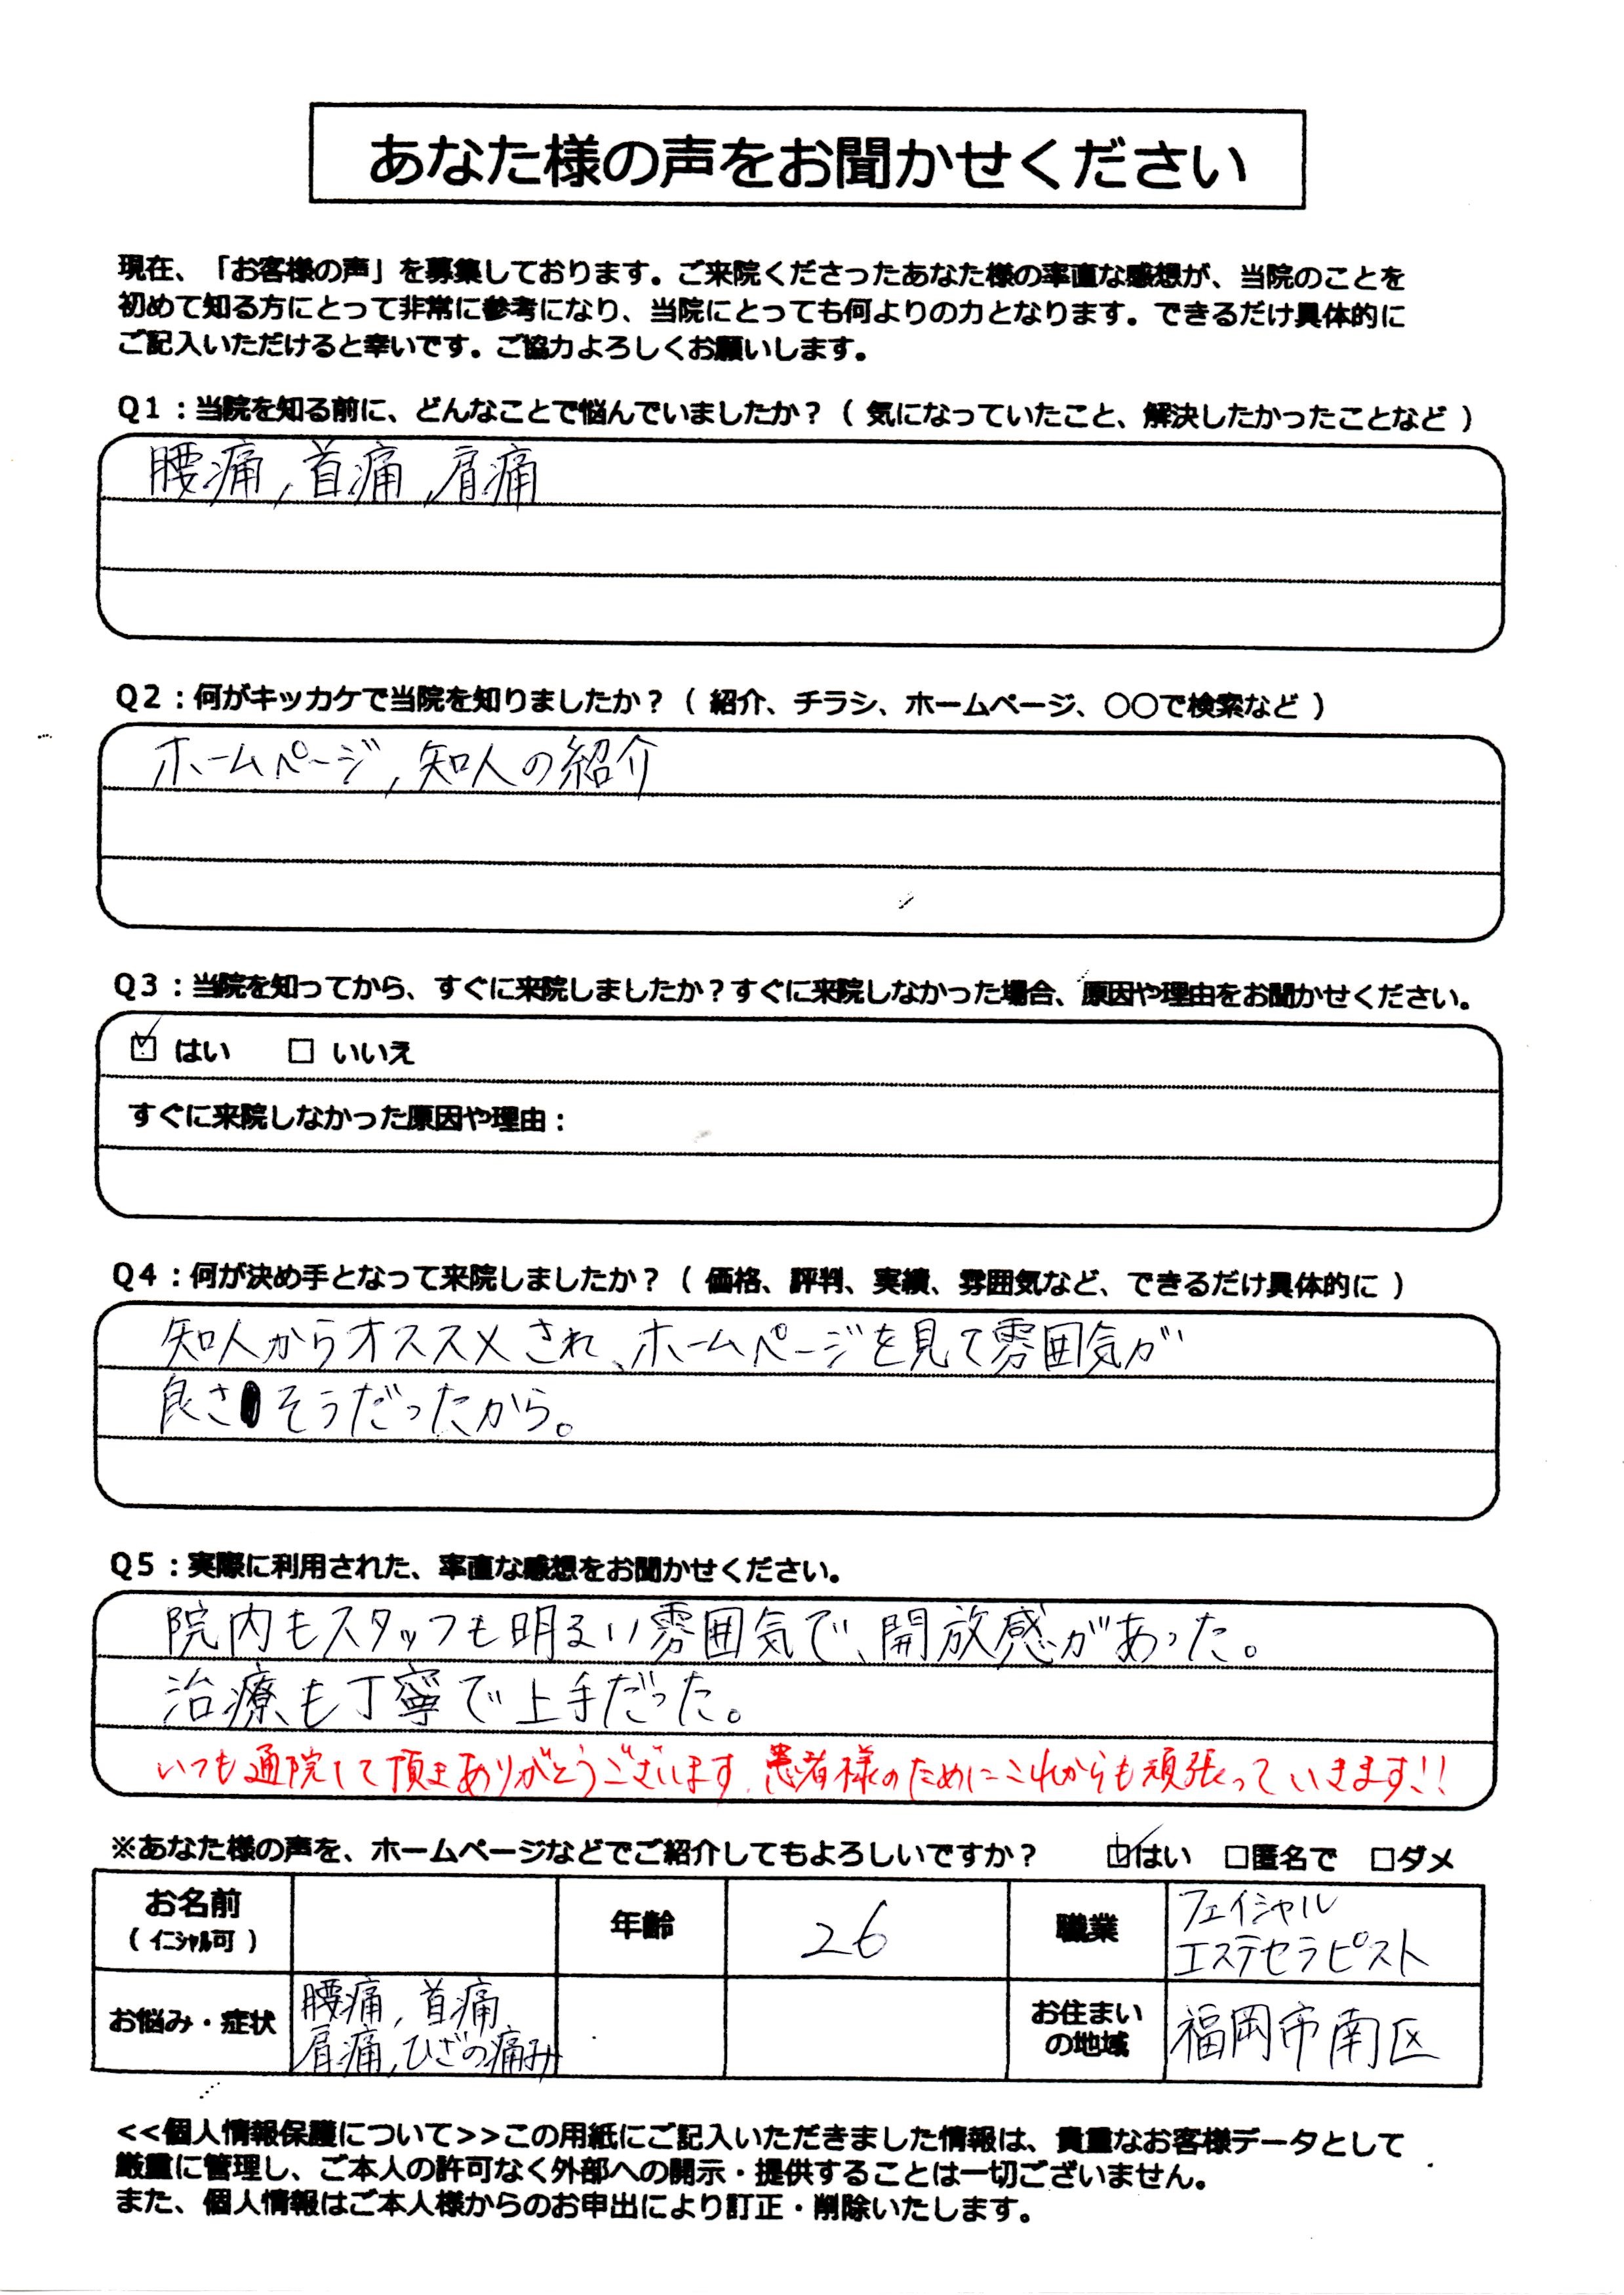 あなた様の声をお聞かせください
現在、「お客様の声」を募集しております。ご来院くださったあなた様の率直な感想が、当院のことを
初めて知る方にとって非常に参考になり、当院にとっても何よりの力となります。できるだけ具体的に
ご記入いただけると幸いです。ご協力よろしくお願いします。
Q1：当院を知る前に、どんなことで悩んでいましたか？（ 気になっていたこと、解決したかったことなど ）
腰痛，首痛，肩痛
Q2：何がキッカケで当院を知りましたか？（ 紹介、チラシ、ホームページ、○○で検索など ）
ホームページ，知人の紹介
Q3：当院を知ってから、すぐに来院しましたか？すぐに来院しなかった場合、原因や理由をお聞かせください。
☑ はい □ いいえ
すぐに来院しなかった原因や理由：
Q4：何が決め手となって来院しましたか？（ 価格、評判、実績、雰囲気など、できるだけ具体的に ）
知人からオススメされ、ホームページを見て雰囲気が
良さそうだったから。
Q5：実際に利用された、率直な感想をお聞かせください。
院内もスタッフも明るい雰囲気で、開放感があった。
治療も丁寧で上手だった。
いつも通院して頂きありがとうございます。患者様のためにこれからも頑張っていきます！！
※あなた様の声を、ホームページなどでご紹介してもよろしいですか？ ☑はい □匿名で □ダメ
お名前 年齢 26 職業 フェイシャル
（ イニシャル可 ） エステセラピスト
お悩み・症状 腰痛，首痛 お住まい 福岡市南区
肩痛，ひざの痛み の地域
<<個人情報保護について>>この用紙にご記入いただきました情報は、貴重なお客様データとして
厳重に管理し、ご本人の許可なく外部への開示・提供することは一切ございません。
また、個人情報はご本人様からのお申出により訂正・削除いたします。